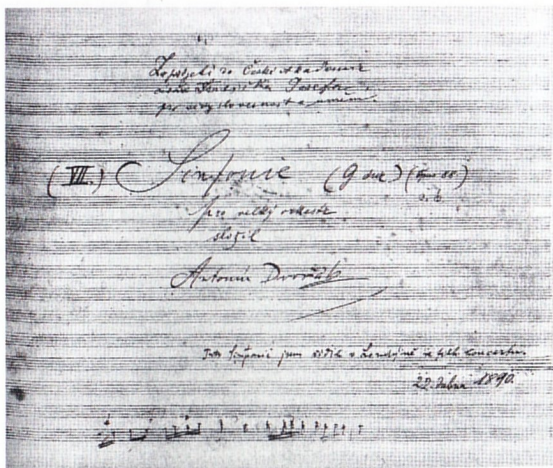 České Akademie
císaře Františka Josefa
pro vědy slovesnost a umění.
(VII.) Sinfonie (G dur)
pro velký orkestr
složil
Antonín Dvořák
Sinfonii jsem řídil v Londýně concertu.
22. dubna 1890.